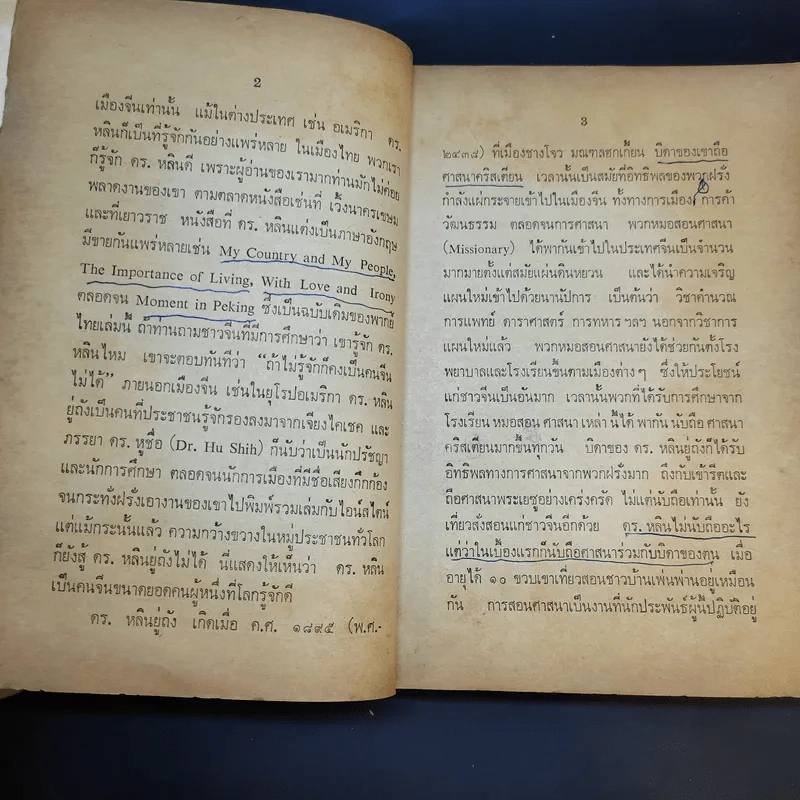 2
เมืองจีนเท่านั้น แม้ในต่างประเทศ เช่น อเมริกา ดร.
หลินก็เป็นที่รู้จักกันอย่างแพร่หลาย ในเมืองไทย พวกเรา
ก็รู้จัก ดร. หลินดี เพราะผู้อ่านของเรามากท่านมักไม่ค่อย
พลาดงานของเขา ตามตลาดหนังสือเช่นที่ เวิ้งนาครเขษม
และที่เยาวราช หนังสือที่ ดร. หลินแต่งเป็นภาษาอังกฤษ
มีขายกันแพร่หลายเช่น My Country and My People,
The Importance of Living, With Love and Irony
ตลอดจน Moment in Peking ซึ่งเป็นฉบับเดิมของพากย์
ไทยเล่มนี้ ถ้าท่านถามชาวจีนที่มีการศึกษาว่า เขารู้จัก ดร.
หลินไหม เขาจะตอบทันทีว่า “ถ้าไม่รู้จักก็คงเป็นคนจีน
ไม่ได้” ภายนอกเมืองจีน เช่นในยุโรปอเมริกา ดร. หลิน
ยู่ถังเป็นคนที่ประชาชนรู้จักรองลงมาจากเจียงไคเชค และ
ภรรยา ดร. หูชื่อ (Dr. Hu Shih) ก็นับว่าเป็นนักปรัชญา
และนักการศึกษา ตลอดจนนักการเมืองที่มีชื่อเสียงกึกก้อง
จนกระทั่งฝรั่งเอางานของเขาไปพิมพ์รวมเล่มกับไอน์สไตน์
แต่แม้กระนั้นแล้ว ความกว้างขวางในหมู่ประชาชนทั่วโลก
ก็ยังสู้ ดร. หลินยู่ถังไม่ได้ นี่แสดงให้เห็นว่า ดร. หลิน
เป็นคนจีนขนาดยอดคนผู้หนึ่งที่โลกรู้จักดี
ดร. หลินยู่ถัง เกิดเมื่อ ค.ศ. ๑๘๙๕ (พ.ศ.-
3
๒๔๓๘) ที่เมืองชางโจว มณฑลฮกเกี้ยน บิดาของเขาถือ
ศาสนาคริสเตียน เวลานั้นเป็นสมัยที่อิทธิพลของพวกฝรั่ง
กำลังแผ่กระจายเข้าไปในเมืองจีน ทั้งทางการเมือง การค้า
วัฒนธรรม ตลอดจนการศาสนา พวกหมอสอนศาสนา
(Missionary) ได้พากันเข้าไปในประเทศจีนเป็นจำนวน
มากมายตั้งแต่สมัยแผ่นดินหยวน และได้นำความเจริญ
แผนใหม่เข้าไปด้วยนานัปการ เป็นต้นว่า วิชาคำนวณ
การแพทย์ ดาราศาสตร์ การทหาร ฯลฯ นอกจากวิชาการ
แผนใหม่แล้ว พวกหมอสอนศาสนายังได้ช่วยกันตั้งโรง
พยาบาลและโรงเรียนขึ้นตามเมืองต่าง ๆ ซึ่งให้ประโยชน์
แก่ชาวจีนเป็นอันมาก เวลานั้นพวกที่ได้รับการศึกษาจาก
โรงเรียน หมอสอน ศาสนา เหล่า นี้ได้ พากัน นับถือ ศาสนา
คริสเตียนมากขึ้นทุกวัน บิดาของ ดร. หลินยู่ถังก็ได้รับ
อิทธิพลทางการศาสนาจากพวกฝรั่งมาก ถึงกับเข้ารีตและ
ถือศาสนาพระเยซูอย่างเคร่งครัด ไม่แต่นับถือเท่านั้น ยัง
เที่ยวสั่งสอนแก่ชาวจีนอีกด้วย ดร. หลินไม่นับถืออะไร
แต่ว่าในเบื้องแรกก็นับถือศาสนาร่วมกับบิดาของตน เมื่อ
อายุได้ ๑๐ ขวบเขาเที่ยวสอนชาวบ้านเพ่นพ่านอยู่เหมือน
กัน การสอนศาสนาเป็นงานที่นักประพันธ์ผู้นี้ปฏิบัติอยู่